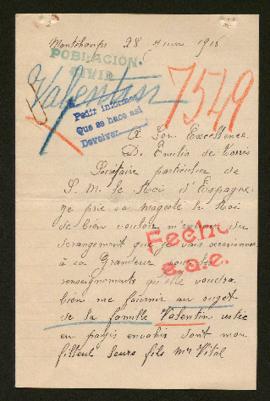 28 1916
POBLACIÓN
CIVIL
Valentin
7549
Pedir informes
Que se hace así
Devolver
A Son Excellence
D. Emilio de Torres
Secrétaire particulier de
S. M. le Roi d'Espagne
Je prie sa Majesté le Roi
de bien vouloir m'excuser du
dérangement que je vais occasionner
à sa Grandeur pour les
Fecha
e.a.e.
renseignements qu'elle voudra
bien me fournir au sujet
de la famille Valentin restée
en pays envahis dont mon
filleul leurs fils Mr Vital